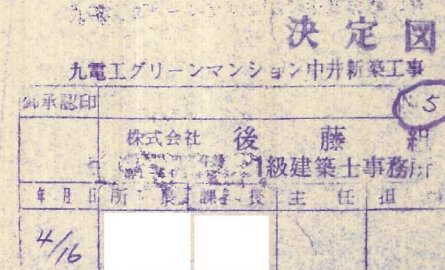 決定図
九電工グリーンマンション中井新築工事
御承認印
5
株式会社 後藤組
1級建築士事務所
年月日 所長 課長 主任 担
4/16